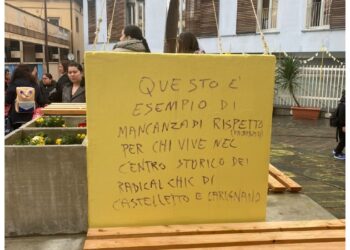 QUESTO E'
ESEMPIO DI
MANCANZA DI RISPETTO
PER CHI VIVE NEL
CENTRO STORICO DEI
RADICAL CHIC DI
CASTELLETTO E CARIGNANO